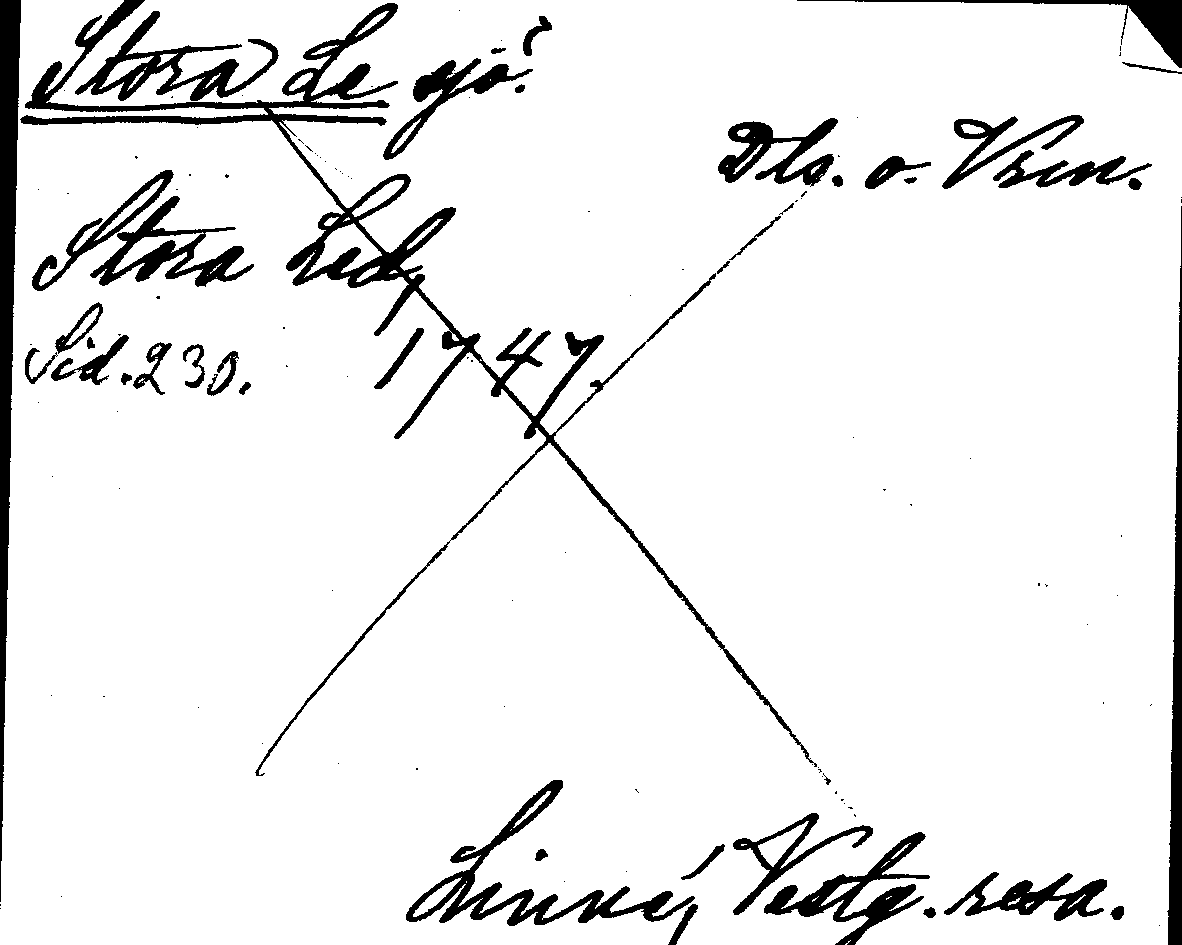 Stora Le sjö.
Dls. o. Vrm.
Stora Led,
1747.
Sid. 230.
Linné, Vestg. resa.